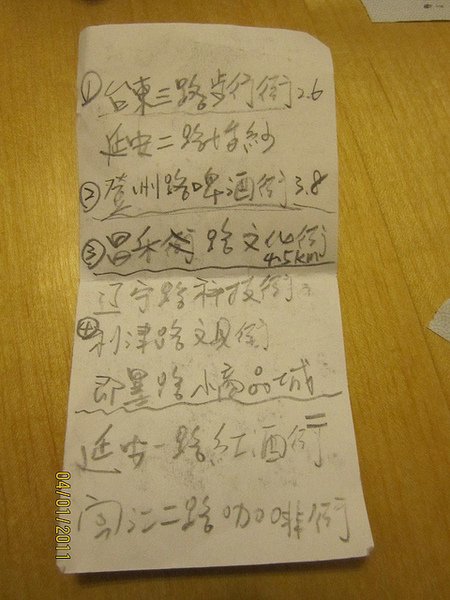 ① 台東三路步行街 2.6
延安二路婚紗
② 登州路啤酒街 3.8
③ 昌乐街路文化街
4.5km
辽宁路科技街
④ 利津路文具街
即墨路小商品城
延安一路红酒街
二路咖啡街
04/01/2011